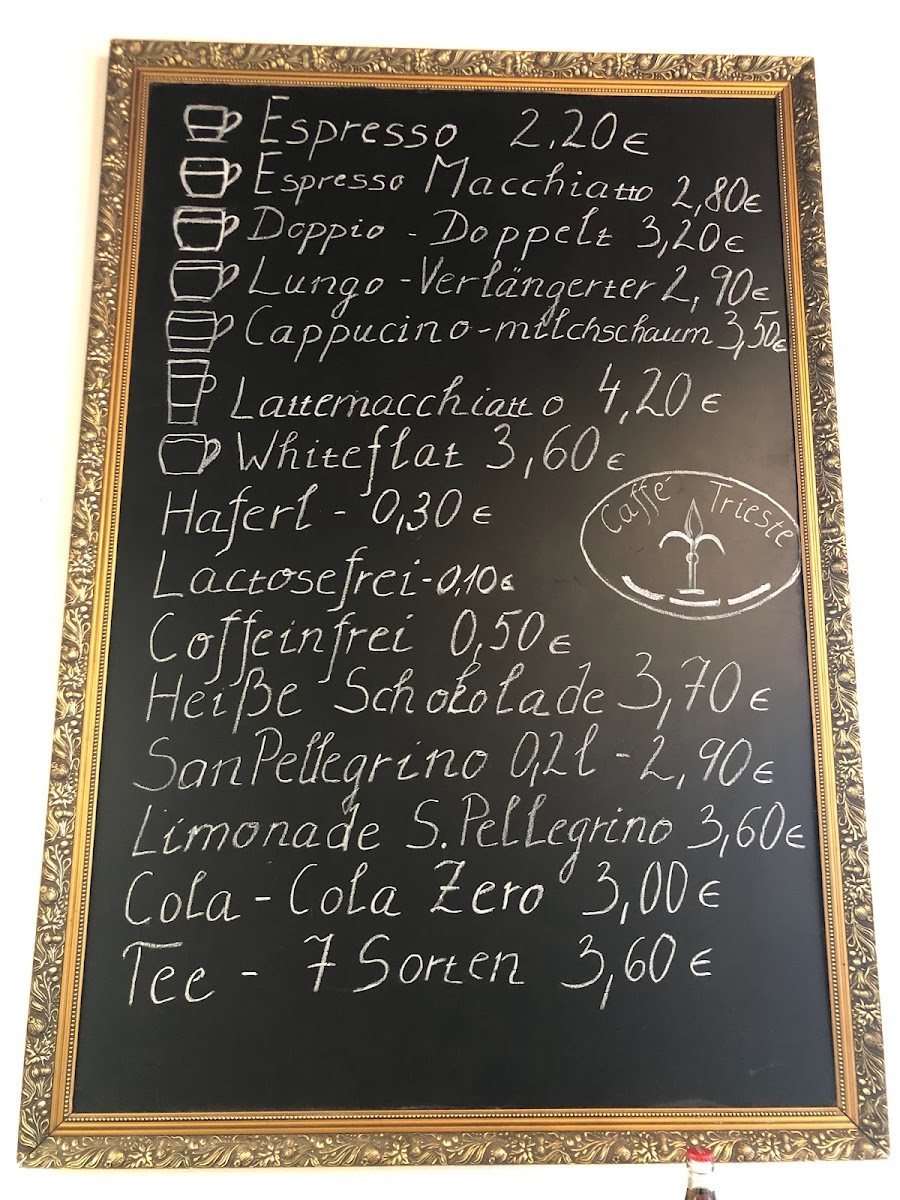 Espresso 2,20€
Espresso Macchiatto 2,80€
Doppio - Doppelt 3,20€
Lungo - Verlängerter 2,90€
Cappucino - milchschaum 3,50€
Lattemacchiatto 4,20€
Whiteflat 3,60€
Caffe' Trieste
Haferl - 0,30€
Lactosefrei - 0,10€
Coffeinfrei 0,50€
Heiße Schokolade 3,70€
SanPellegrino 0,2l - 2,90€
Limonade S.Pellegrino 3,60€
Cola - Cola Zero 3,00€
Tee - 7 Sorten 3,60€